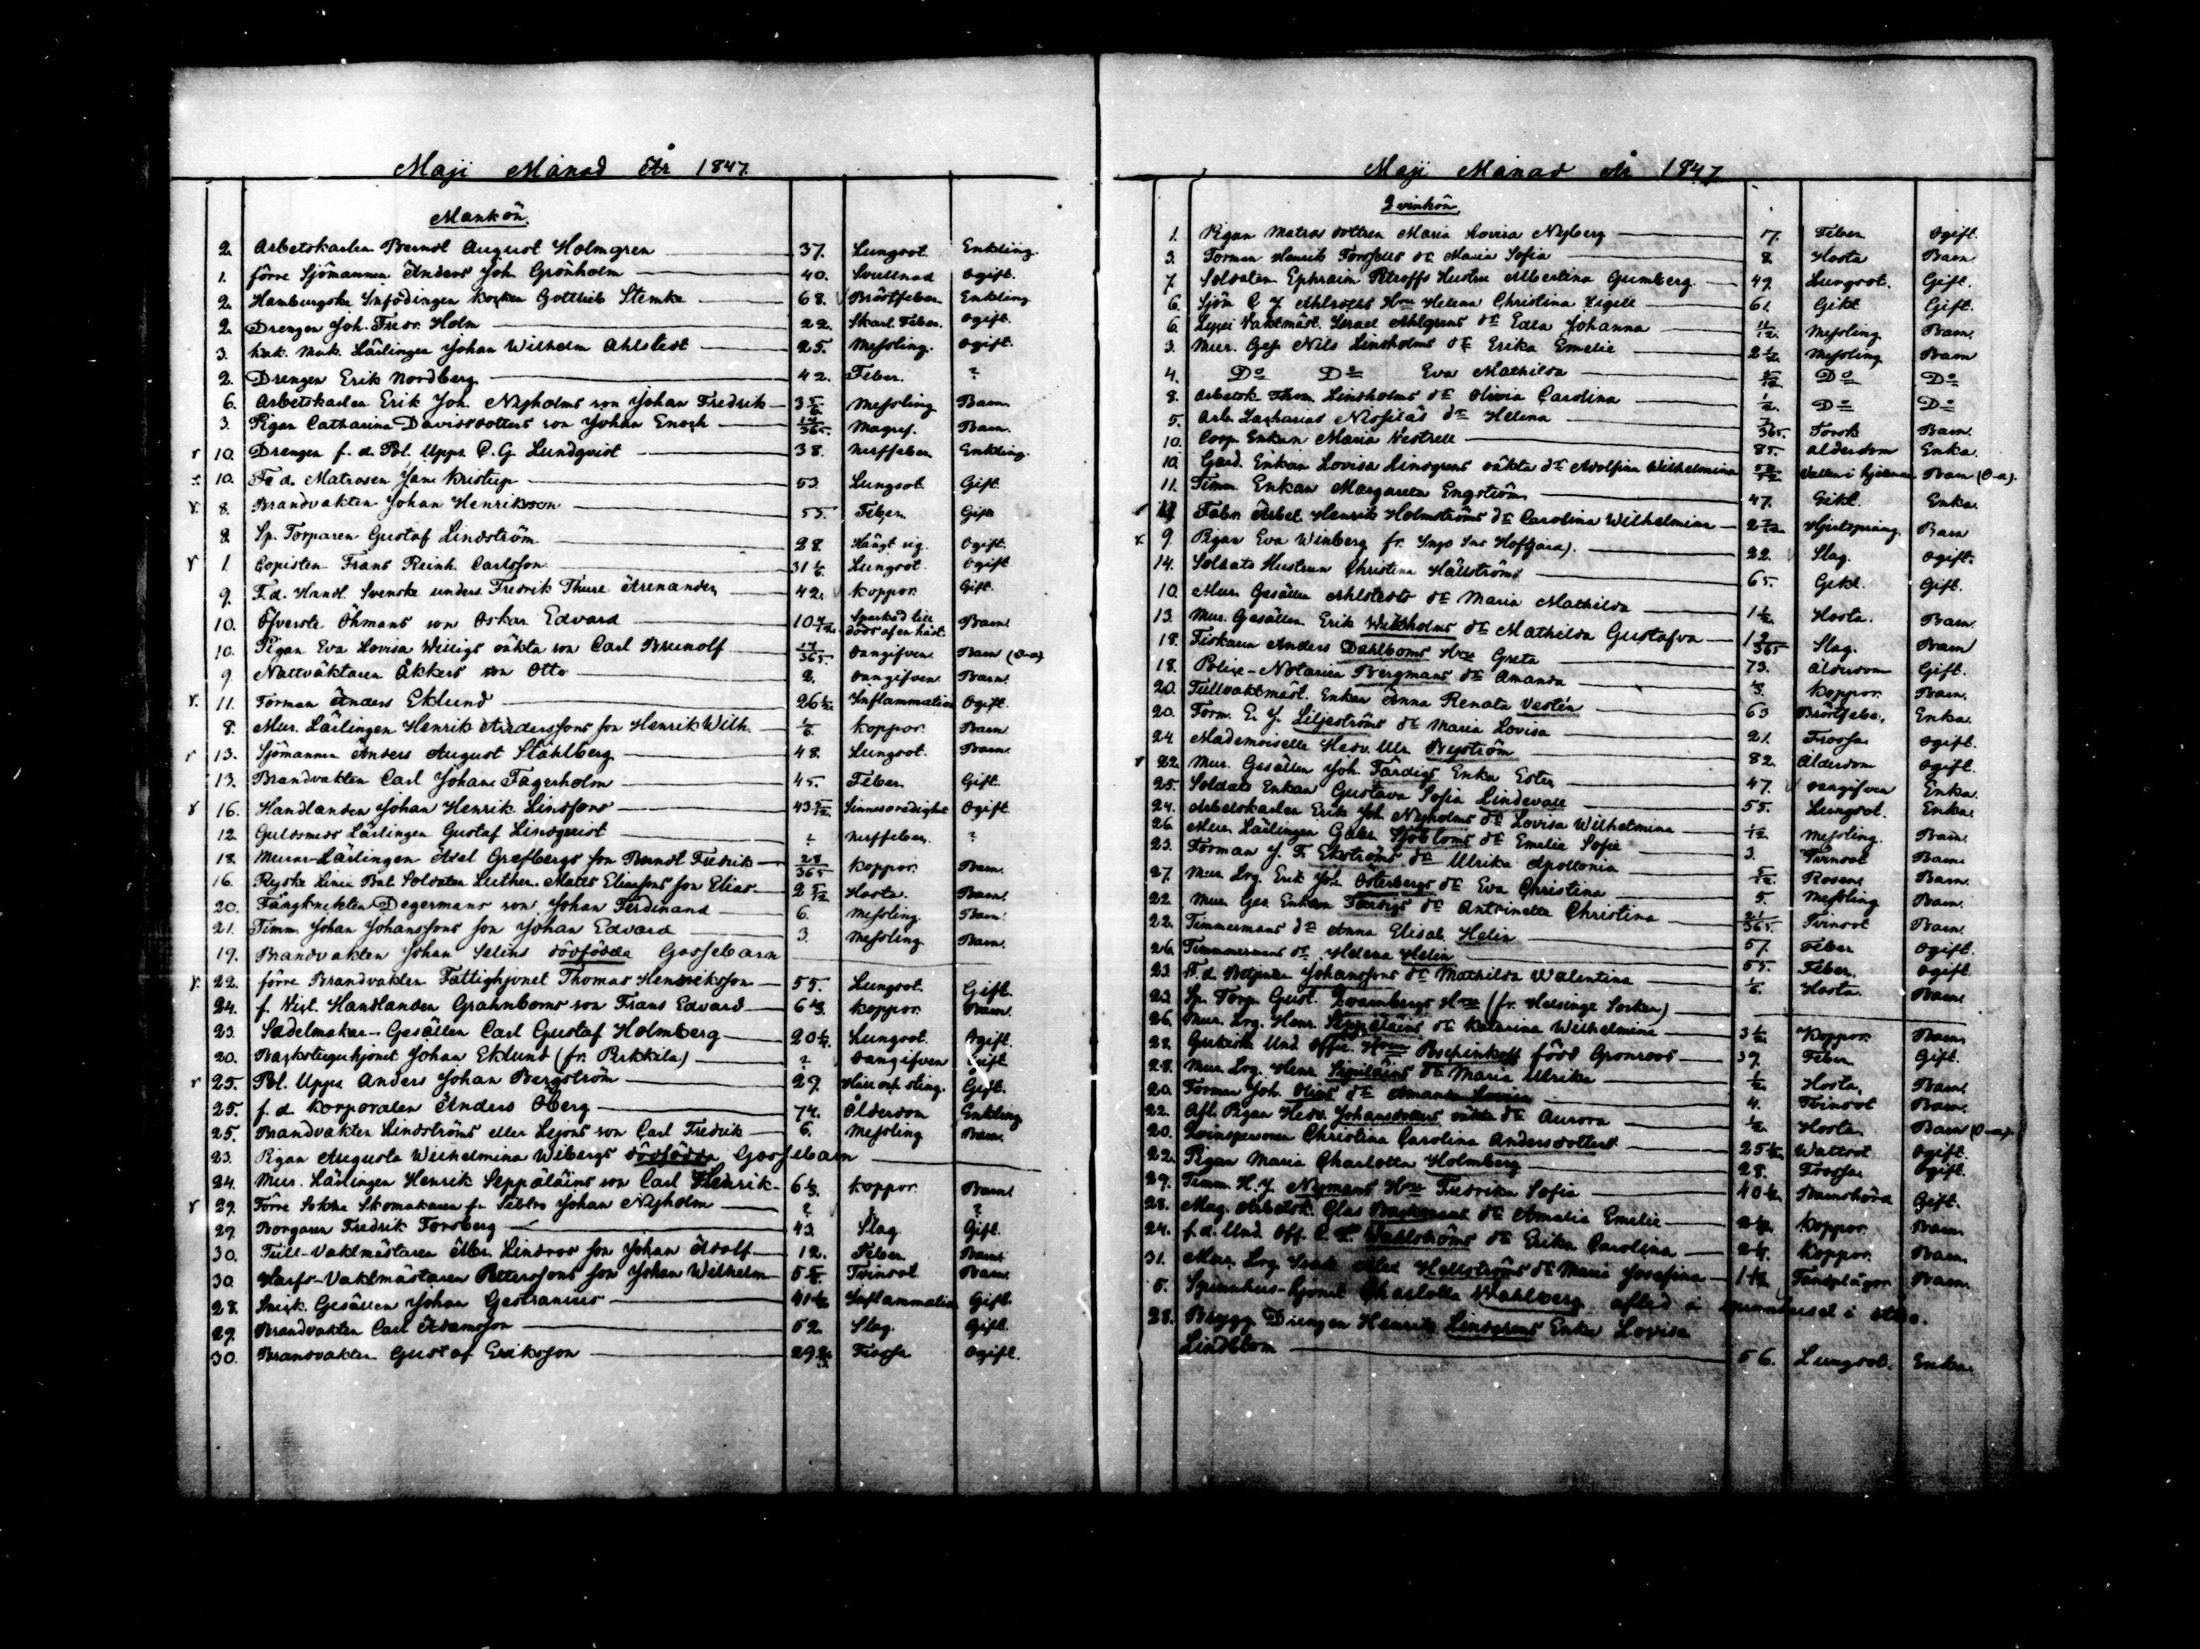 Maji Månad År 1847.
Mankön.
2. Arbetskarlen Berndt August Holmgren 37. Lungsot. Enkling.
1. förre Sjömannen Anders Joh. Grönholm 40. Svullnad Ogift.
2. Hamburgska Infödingen Kocken Gottlieb Stemke 68. Bröstfeber Enkling
2. Drengen Joh. Fredr. Holm 22. Skarl. Feber. Ogift.
3. Kak. Mak. Lärlingen Johan Wilhelm Ahlstedt 25. Messling. Ogift.
2. Drengen Erik Nordberg 42. Feber. ?
6. Arbetskarlen Erik Joh. Nyholms son Johan Fredrik 3 5/6. Messling Barn.
3. Pigan Catharina Davidsdotters son Johan Enoch 14/365. Magref. Barn.
r 10. Drengen f. d. Pol. Upps. C. G. Lundqvist 38. Nerffeber Enkling.
10. Fd. Matrosen Jan Kristrup 53. Lungsot Gift.
r 8. Brandvakten Johan Henriksson 55. Feber. Gift
9. Sp. Torparen Gustaf Lindström 28. Hängt sig. Ogift.
r 1. Copisten Frans Reinh. Carlsson 31 1/6. Lungsot. Ogift
9. F.d. Handl. Svenske unders. Fredrik Thure Arenander 42. Koppor. Gift.
10. Öfverste Öhmans son Oskar Edvard 10 7/12. Sparkad till döds af en häst. Barn.
10. Pigan Eva Lovisa Willigs oäkta son Carl Brunolf 17/365. Oangifven Barn (O-a)
9. Nattväktaren Åkkers son Otto 2. Oangifven Barn.
r. 11. Forman Anders Eklund 26 1/2. Inflammation Ogift.
8. Mur. Lärlingen Henrik Anderssons son Henrik Wilh. 1/6. Koppor. Barn
r 13. Sjömannen Anders August Ståhlberg 48. Lungsot. Barn.
13. Brandvakten Carl Johan Fagerholm 45. Feber. Gift.
r 16. Handlanden Johan Henrik Lindfors 43 5/12. Sinnesoredighet Ogift
12. Guldsmeds Lärlingen Gustaf Lindqvist ? Nerffeber. ?
18. Murar-Lärlingen Axel Grefbergs son Berndt Fredrik 28/365 Koppor. Barn.
16. Ryske Linie Bat. Soldaten Luther. Matts Eliassons son Elias 2 5/12 Hosta. Barn.
20. Fångknekten Degermans son Johan Ferdinand 6. Messling. Barn.
21. Timm. Johan Johanssons son Johan Edvard 3. Messling Barn.
19. Brandvakten Johan Selins dödfödda Gossebarn
r. 22. förre Brandvakten Fattighjonet Thomas Henriksson 55. Lungsot. Gift.
24. f. Vict. Handlanden Grahnboms son Frans Edvard 6 2/3. Koppor. Barn.
23. Sadelmakar-Gesällen Carl Gustaf Holmberg 20 1/2. Lungsot. Ogift.
20. Backstuguhjonet Johan Eklund (fr. Pirkkila) ? Oangifven Gift
r 25. Pol. Upps. Anders Johan Bergström 29. Gift.
25. f. d. Korporalen Anders Öberg 74. Ålderdom Enkling
25. Brandvakten Lindströms eller Lejons son Carl Fredrik 6. Messling Barn.
23. Pigan Augusta Wilhelmina Wibergs dödfödda Gossebarn
24. Mur. Lärlingen Henrik Seppäläins son Carl Henrik 6 1/3. Koppor Barn.
r 29. Förre Sokne Skomakaren fr. Sibbo Johan Nyholm ? ? ?
29. Borgaren Fredrik Forsberg 43. Slag Gift.
30. Tull-Vaktmästaren Alex. Lindroos son Johan Adolf 12. Feber Barn.
30. Varfs-Vaktmästaren Petterssons son Johan Wilhelm Tvinsot. Barn.
28. Snick. Gesällen Johan Gestranius 41 1/2 Inflammation Gift.
29. Brandvakten Carl Adamsson 52. Slag. Gift.
30. Brandvakten Gustaf Eriksson Frossa Ogift.
Maji Månad År 1847
Qvinkön
1. Pigan Matros dottren Maria Lovisa Nyberg 17. Feber Ogift.
3. Forman Henrik Forssells dr Maria Sofia 8. Hosta Barn.
7. Soldaten Ephraim Petroffs Hustru Albertina Grunberg. 49. Lungsot. Gift.
6. Sjöm. C. J. Ahlroths Hru Helena Christina Zigell 61. Gikt. Gift.
6. Lycei Vaktmäst. Israel Ahlgrens dr Edla Johanna 11/12. Messling Barn.
3. Mur. Ges. Nils Lindholms dr Erika Emelie 2 1/2. Messling Barn
4. Do Do Eva Mathilda 5/12. Do Do
8. Arbetsk. Thom. Lindholms dr Olivia Carolina 1/2. Do Do
5. Arb. Zacharias Nlositäs dr Helena /365. Torsk Barn.
10. Coop. Enkan Maria Vestrell 85. Ålderdom Enka.
10. Gard. Enkan Lovisa Lindgrens oäkta dr Adolfina Wilhelmina Vatten i hjernan Barn (O-a).
11. Timm. Enkan Margareta Engström 47. Gikt. Enka.
Fabr. Arbet. Henrik Holmströms dr Carolina Wilhelmina 2 7/12. Hjertsprång Barn
r. 9. Pigan Eva Winberg fr. Ingo Sns Hofgård). 22. Slag. Ogift.
14. Soldats Hustrun Christina Hällström 65. Gikt. Gift.
10. Mur. Gesällen Ahlstedts dr Maria Mathilda 1 1/2. Hosta. Barn.
13. Mur. Gesällen Erik Wikholms dr Mathilda Gustafva 12/365 Slag. Barn
18. Fiskaren Anders Dahlboms Hru Greta 73. Ålderdom Gift.
18. Polise-Notarien Bergmans dr Amanda 1/3. Koppor. Barn.
20. Tullvaktmäst. Enkan Anna Renata Vestin 63 Bröstfeber. Enka.
20. Form. E. J. Liljeströms dr Maria Lovisa 21. Frossa Ogift.
24 Mademoiselle Hedv. Ulr. Byström 82. Ålderdom Ogift.
r 22. Mur. Gesällen Joh. Färdigs Enka Ester 47. Oangifven Enka.
25. Soldats Enkan Gustava Sofia Lindevall 55. Lungsot. Enka.
24. Arbetskarlen Erik Joh. Nyholms dr Lovisa Wilhelmina 1/12 Messling. Barn.
26 Mur. Lärlingen Gabr. Sjöbloms dr Emelie Sofie 3. Tvinsot Barn.
23. Forman J. F. Ekströms dr Ulrika Apollonia 5/12. Rosen. Barn.
27. Mur. Lrg. Erik Joh. Österbergs dr Eva Christina 5. Messling Barn.
22 Mur. Ges. Enkan Färdigs dr Antoinette Christina 21/365. Tvinsot Barn.
22. Timmermans dr Anna Elisab. Helin 57. Feber Ogift.
26. Timmermans dr Helena Helin 55. Feber. Ogift.
23. F. d. Betjenten Johanssons dr Mathilda Walentina 1/6. Hosta. Barn
23. Sp. Torp. Gust. Qvarnbergs Hru (fr. Helsinge Socken)
26. Mur. Lrg. Henr. Seppäläins dr Katarina Wilhelmina 3 1/2. Koppor. Barn.
28. Grekiska Und. Offic. Hrun född Gronroos 39. Feber Gift.
28. Mur. Lrg. Henr. Seppäläins dr Maria Ulrika 1/2. Hosta. Barn.
20. Forman Joh. Olins dr Amanda Lovisa 4. Tvinsot Barn.
22. Afl. Pigan Hedv. Johansdotters oäkta dr Aurora 1/2. Hosta. Barn (O-a).
20. Qvinspersonen Christina Carolina Andersdotter 25 1/2. Wattsot Ogift.
22. Pigan Maria Charlotta Holmberg 28. Frossa Ogift.
29. Timm. H. J. Nymans Hru Fredrika Sofia 40 1/2. Barnsbörd Gift.
28. Mag. Arbetsk. Clas Backmans dr Amalia Emelie 2 1/2. Koppor. Barn
24. f. d. Und. Off. C. Dahlströms dr Erika Carolina Koppor. Barn.
31. Mur. Lrg. Alex Hellströms dr Maria Josefina 1 1/2 Tandplågor Barn.
5. Spinnhus-hjonet Charlotta Wahlberg afled å spinnhuset i Åbo.
28. Brygg. Drengen Henrik Lindgrens Enka Lovisa
Lindblom 56. Lungsot. Enka.